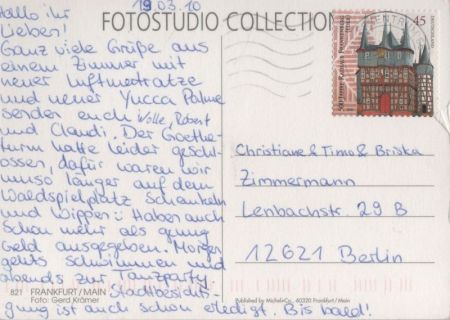 19.03.10
FOTOSTUDIO COLLECTION
Hallo ihr
Lieben!
Ganz viele Grüße aus
einem Zimmer mit
neuer Luftmatratze
und neuer Yucca Palme
senden euch Wolle, Robert
und Claudi. Der Goethe-
turm hatte leider geschl-
ossen, dafür waren wir
umso länger auf dem
Waldspielplatz Schaukeln
und Wippen. Haben auch
schon mehr als genug
Geld ausgegeben. Morgen
gehts schwimmen und
abends zur Tanzparty.
Stadtbesichti-
gung ist auch schon erledigt. Bis bald!
821 FRANKFURT/MAIN
Foto: Gerd Krämer
45
Christiane & Timo & Briska
Zimmermann
Lenbachstr. 29 B
12621 Berlin
Published by Michel+Co., 60320 Frankfurt/Main